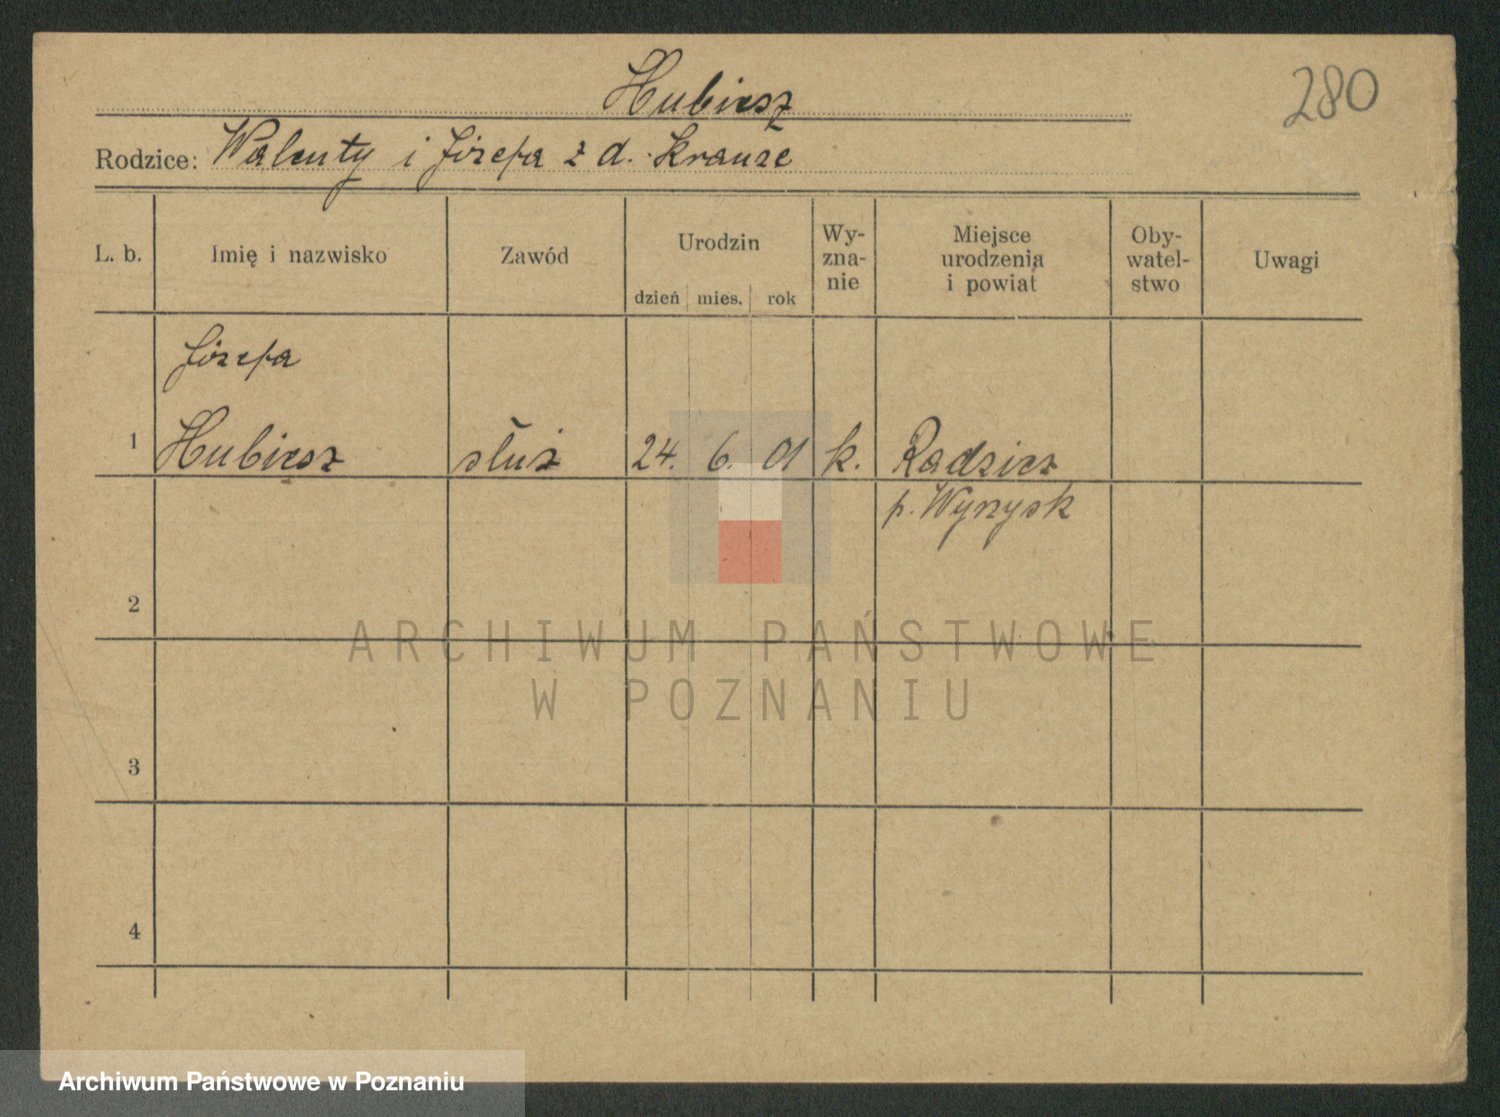 Hubiesz
280
Rodzice: Walenty i Józefa z d. Krauze
L. b.
Imię i nazwisko
Zawód
Urodzin
dzień mies. rok
Wy-
zna-
nie
Miejsce
urodzenia
i powiat
Oby-
watel-
stwo
Uwagi
Józefa
1 Hubiesz służ 24. 6. 01 k. Radzicz
p. Wyrzysk
2
3
4
ARCHIWUM PAŃSTWOWE
W POZNANIU
Archiwum Państwowe w Poznaniu